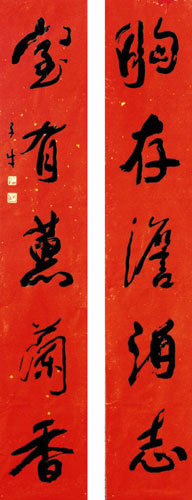 胸存澹泊志
室有蕙蘭香